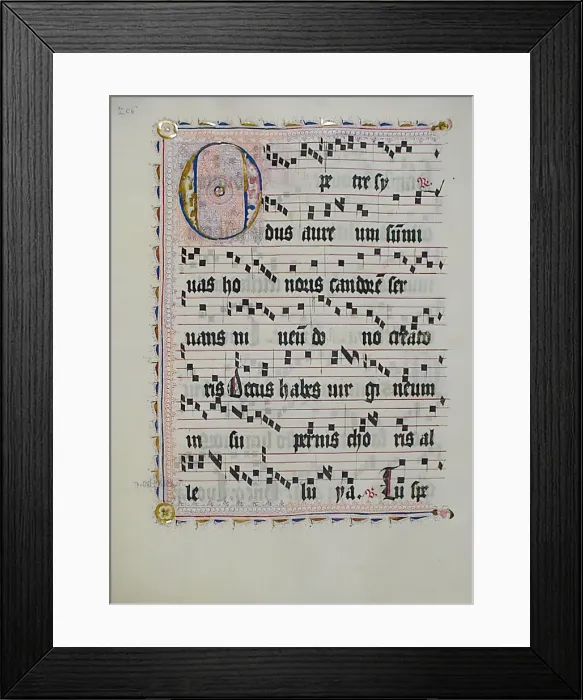 206
O pe tre sy R.
dus aure um sūmi
nas ho noris candorē ser
uans ni ueū do no creato
ris Decus habes uir gi neum
in su pernis cho ris al
le lu ya. V. Tu spe